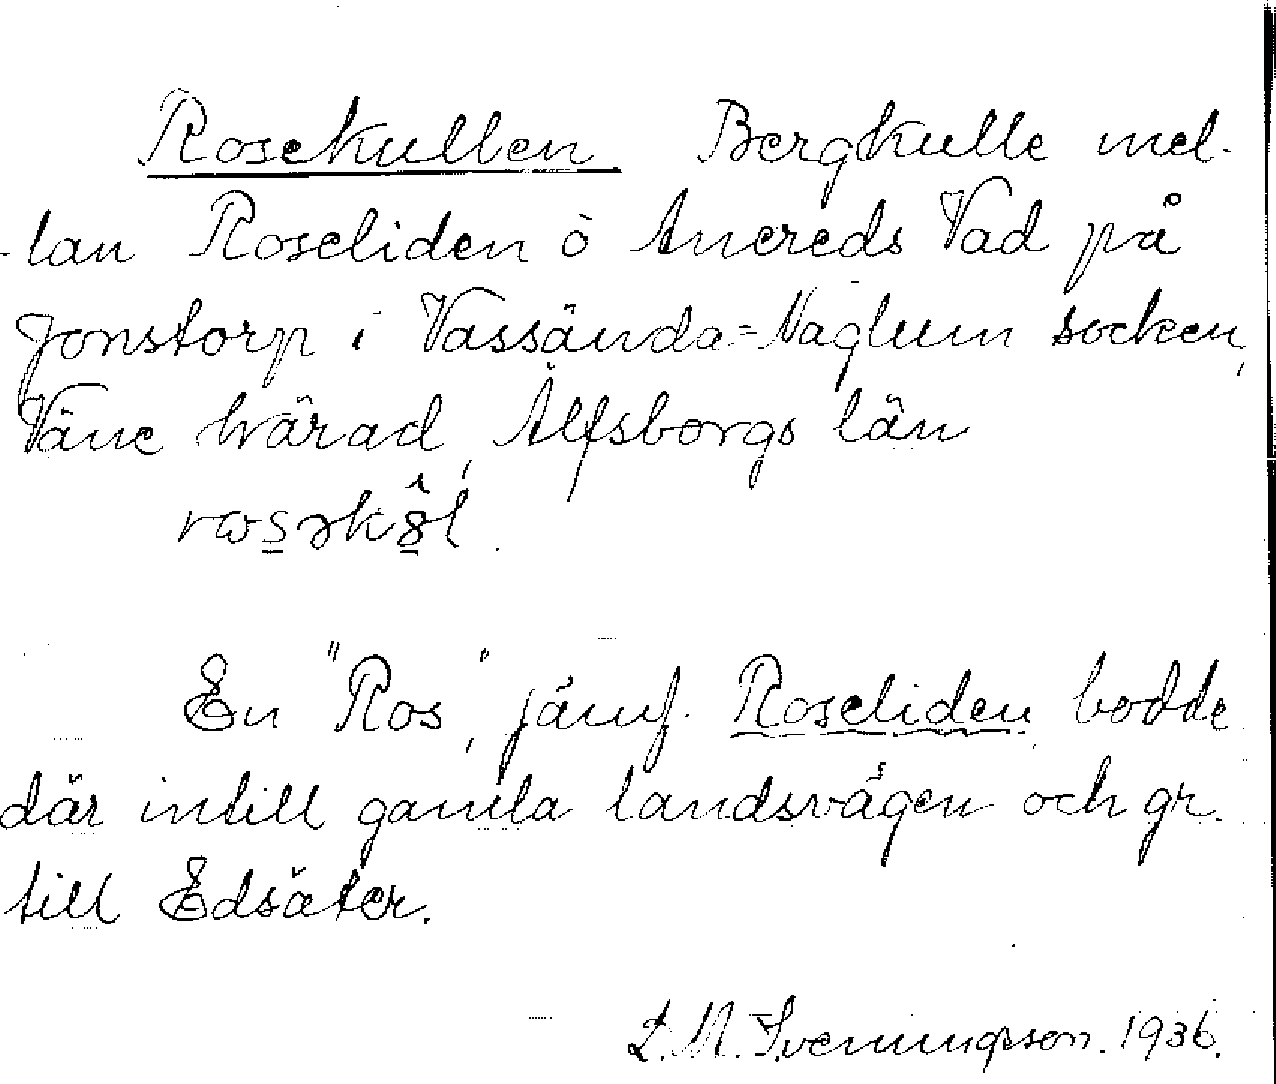 Rosekullen Bergkulle mel-
lan Roseliden o Anereds Vad på
Jonstorp i Vassända=Naglum socken,
Väne härad, Älfsborgs län
En "Ros", jämf. Roseliden bodde
där intill gamla landsvägen och gr.
till Edsäter.
L. M. Svenungsson. 1936.